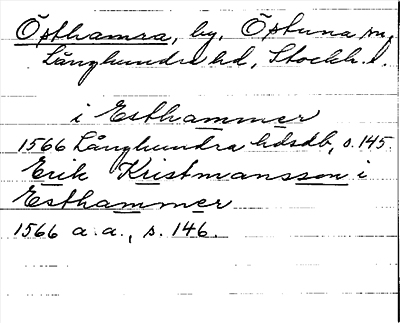 Östhamra, by, Östuna sn,
Långhundra hd, Stockh. l.
i Esthammer
1566 Långhundra hdsdb, s. 145.
Erik Kristmansson i
Esthammer
1566 a. a., s. 146.